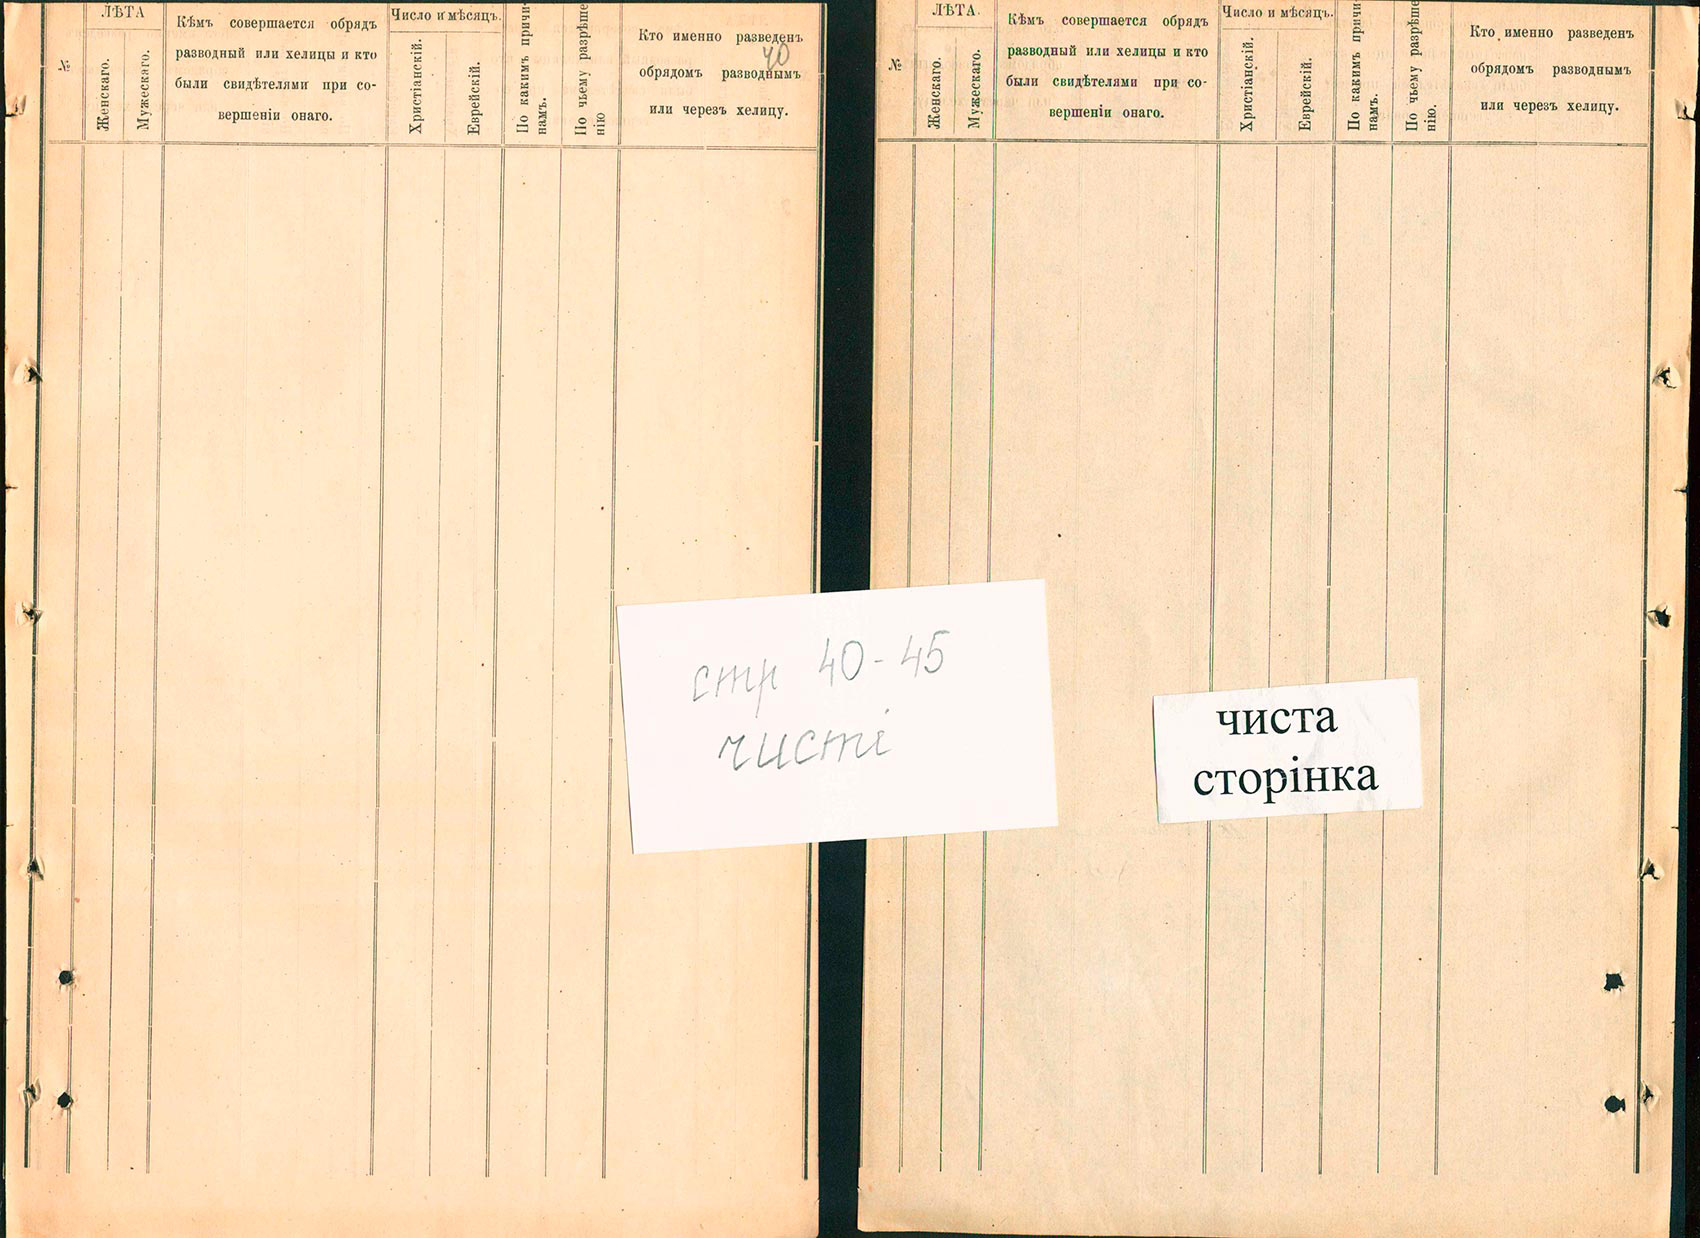 №
ЛѢТА
Женскаго.
Мужескаго.
Кѣмъ совершается обрядъ
разводный или хелицы и кто
были свидѣтелями при со-
вершеніи онаго.
Число и мѣсяцъ.
Христіанскій.
Еврейскій.
По какимъ причи-
намъ.
По чьему разрѣше
нію
Кто именно разведенъ
обрядомъ разводнымъ
или черезъ хелицу.
40
№
ЛѢТА.
Женскаго.
Мужескаго.
Кѣмъ совершается обрядъ
разводный или хелицы и кто
были свидѣтелями при со-
вершеніи онаго.
Число и мѣсяцъ.
Христіанскій.
Еврейскій.
По какимъ причи-
намъ.
По чьему разрѣше
нію.
Кто именно разведенъ
обрядомъ разводнымъ
или черезъ хелицу.
стр 40-45
чисті
чиста
сторінка